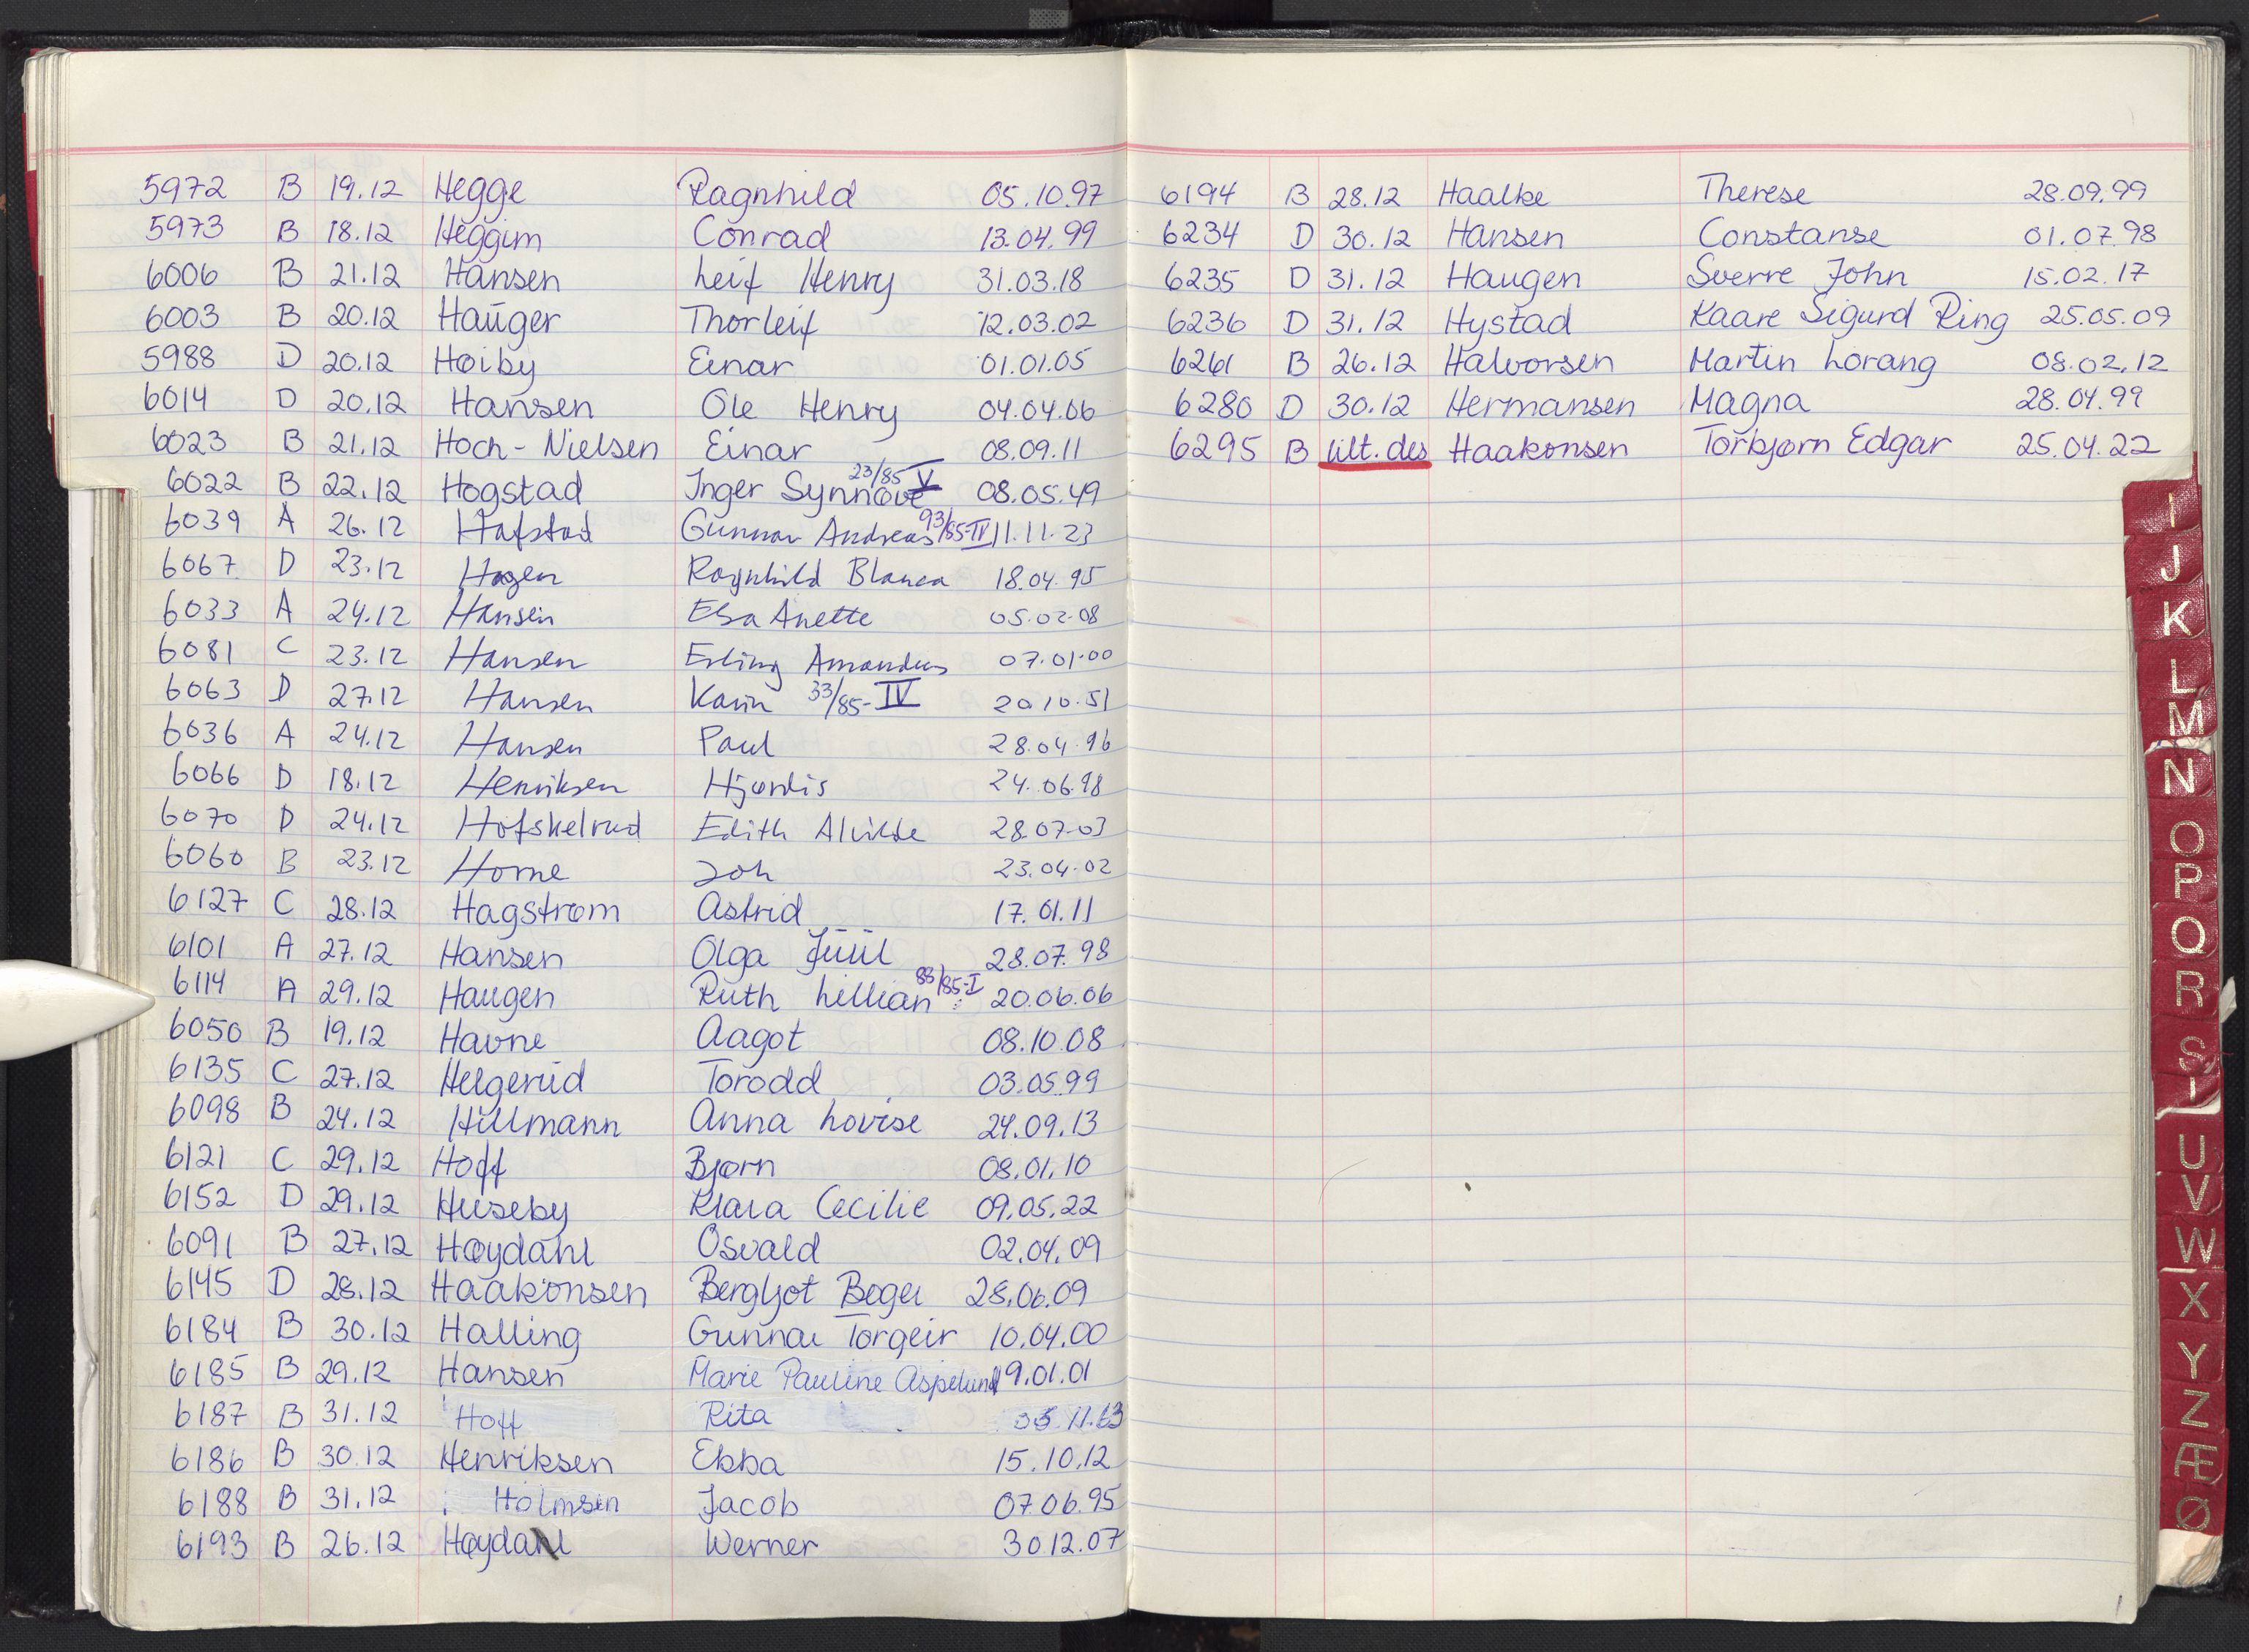 5972 B 19.12 Hegge Ragnhild 05.10.97
5973 B 18.12 Heggim Conrad 13.04.99
6006 B 21.12 Hansen Leif Henry 31.03.18
6003 B 20.12 Hauger Thorleif 12.03.02
5988 D 20.12 Høiby Einar 01.01.05
6014 D 20.12 Hansen Ole Henry 04.04.06
6023 B 21.12 Hoch-Nielsen Einar 08.09.11
6022 B 22.12 Hogstad Inger Synnøve 23/85 V 08.05.49
6039 A 26.12 Hafstad Gunnar Andreas 93/85-IV 11.11.23
6067 D 23.12 Hagen Ragnhild Blanca 18.04.95
6033 A 24.12 Hansen Elsa Anette 05.02.08
6081 C 23.12 Hansen Erling Amandus 07.01.00
6063 D 27.12 Hansen Karin 33/85-IV 20.10.51
6036 A 24.12 Hansen Paul 28.04.96
6066 D 18.12 Henriksen Hjørdis 24.06.98
6070 D 24.12 Hofskelrud Edith Alvilde 28.07.03
6060 B 23.12 Horne Joh 23.04.02
6127 C 28.12 Hagstrøm Astrid 17.01.11
6101 A 27.12 Hansen Olga Juul 28.07.98
6114 A 29.12 Haugen Ruth Lillian 88/85-I 20.06.06
6050 B 19.12 Havne Aagot 08.10.08
6135 C 27.12 Helgerud Torodd 03.05.99
6098 B 24.12 Hillmann Anna Lovise 24.09.13
6121 C 29.12 Hoff Bjørn 08.01.10
6152 D 29.12 Huseby Klara Cecilie 09.05.22
6091 B 27.12 Høydahl Osvald 02.04.09
6145 D 28.12 Haakonsen Bergljot Bøger 28.06.09
6184 B 30.12 Halling Gunnar Torgeir 10.04.00
6185 B 29.12 Hansen Marie Pauline Aspelund 19.01.01
6187 B 31.12 Hoff Rita 11.63
6186 B 30.12 Henriksen Ebba 15.10.12
6188 B 31.12 Holmsen Jacob 07.06.95
6193 B 26.12 Høydahl Werner 30.12.07
6194 B 28.12 Haalke Therese 28.09.99
6234 D 30.12 Hansen Constanse 01.07.98
6235 D 31.12 Haugen Sverre John 15.02.17
6236 D 31.12 Hystad Kaare Sigurd Ring 25.05.09
6261 B 26.12 Halvorsen Martin Lorang 08.02.12
6280 D 30.12 Hermansen Magna 28.04.99
6295 B ult. des Haakonsen Torbjørn Edgar 25.04.22
I
J
K
L
M
N
O
P
Q
R
S
T
U
V
W
X
Y
Z
Æ
Ø